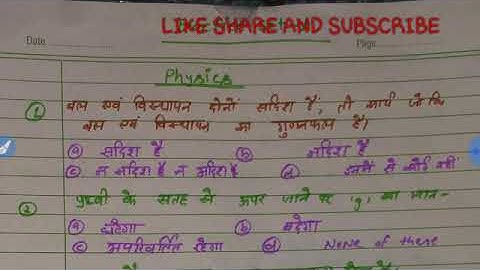 LIKE SHARE AND SUBSCRIBE
Date
Page
Physics
① बल एवं विस्थापन दोनों सदिश हैं, तो कार्य जो कि
बल एवं विस्थापन का गुणनफल है।
ⓐ सदिश है ⓑ अदिश है
ⓒ न सदिश है न अदिश है ⓓ इनमें से कोई नहीं
② पृथ्वी के सतह से ऊपर जाने पर 'g' का मान-
ⓐ घटेगा ⓑ बढ़ेगा
ⓒ अपरिवर्तित रहेगा ⓓ None of these